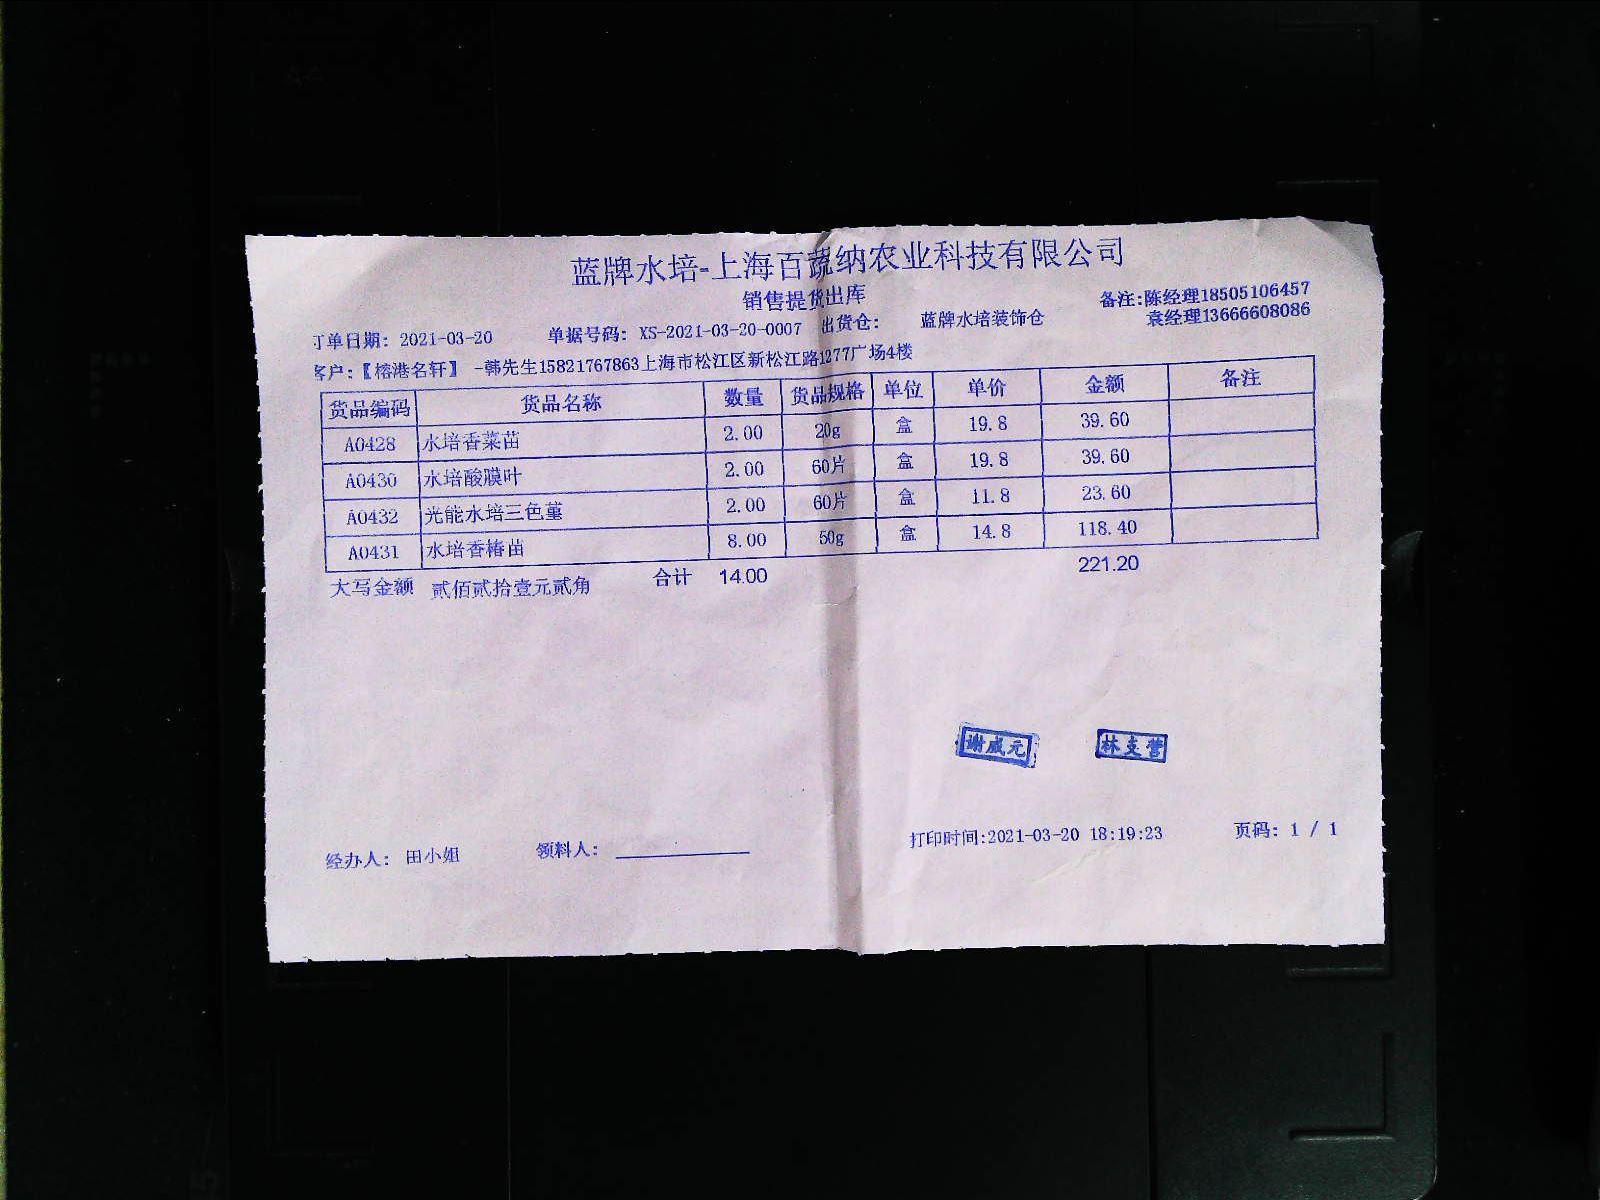 蓝牌水培-上海百蔬纳农业科技有限公司
销售提货出库
备注:陈经理18505106457
袁经理13666608086
订单日期: 2021-03-20 单据号码: XS-2021-03-20-0007 出货仓: 蓝牌水培装饰仓
客户:【榕港名轩】 -韩先生15821767863上海市松江区新松江路1277广场4楼
货品编码 货品名称 数量 货品规格 单位 单价 金额 备注
A0428 水培香菜苗 2.00 20g 盒 19.8 39.60
A0430 水培酸膜叶 2.00 60片 盒 19.8 39.60
A0432 光能水培三色堇 2.00 60片 盒 11.8 23.60
A0431 水培香椿苗 8.00 50g 盒 14.8 118.40
大写金额 贰佰贰拾壹元贰角 合计 14.00 221.20
谢威元 林支营
经办人: 田小姐 领料人: 打印时间:2021-03-20 18:19:23 页码: 1 / 1